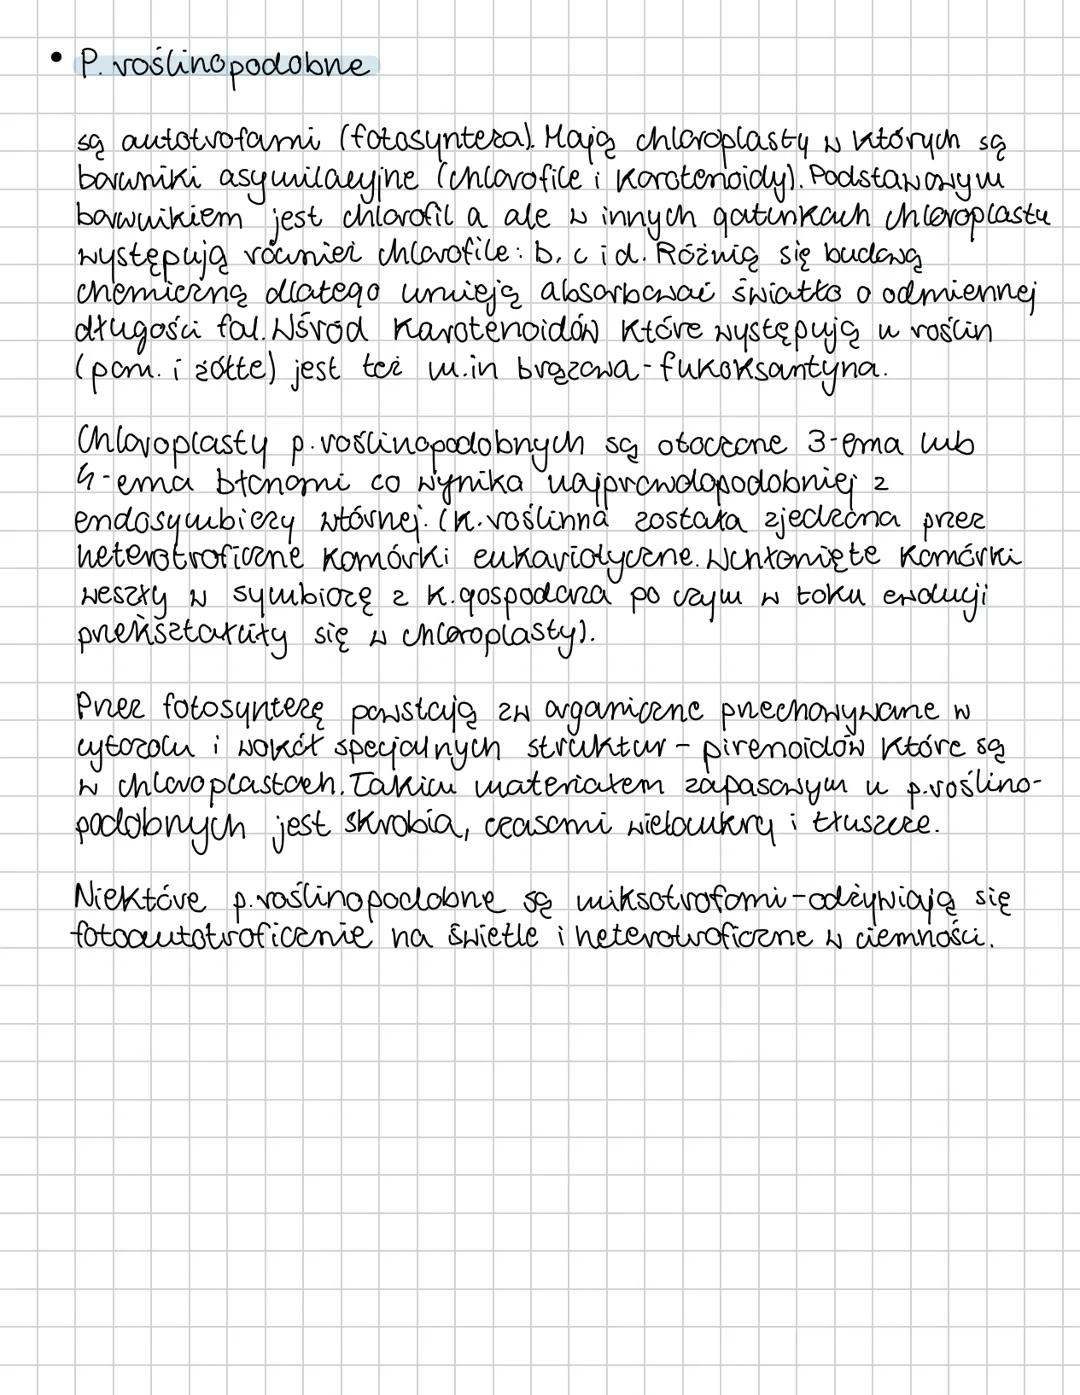 • P. roślinopodobne
są autotrofami (fotosynteza). Mają chloroplasty w których są
barwniki asymilacyjne (chlorofile i karotenoidy). Podstawowym
barwnikiem jest chlorofil a ale w innych gatunkach chloroplastu
występują również chlorofile: b, c i d. Różnią się budową
chemiczną dlatego umieją absorbować światło o odmiennej
długości fal. Wśród karotenoidów które występują u roślin
(pom. i żółte) jest też m.in brązowa - fukoksantyna.
Chloroplasty p. roślinopodobnych są otoczone 3-ema lub
4-ema błonami co wynika najprawdopodobniej z
endosymbiozy wtórnej. (k. roślinna została zjedzona przez
heterotroficzne komórki eukariotyczne. Wchłonięte komórki
weszły w symbiozę z k. gospodarza po czym w toku ewolucji
przekształciły się w chloroplasty).
Przez fotosyntezę powstają zw organiczne przechowywane w
cytozolu i wokół specjalnych struktur - pirenoidów które są
w chloroplastach. Takim materiałem zapasowym u p. roślino-
podobnych jest skrobia, czasami wielocukry i tłuszcze.
Niektóre p. roślinopodobne są miksotrofami - odżywiają się
fotoautotroficznie na świetle i heterotroficzne w ciemności.